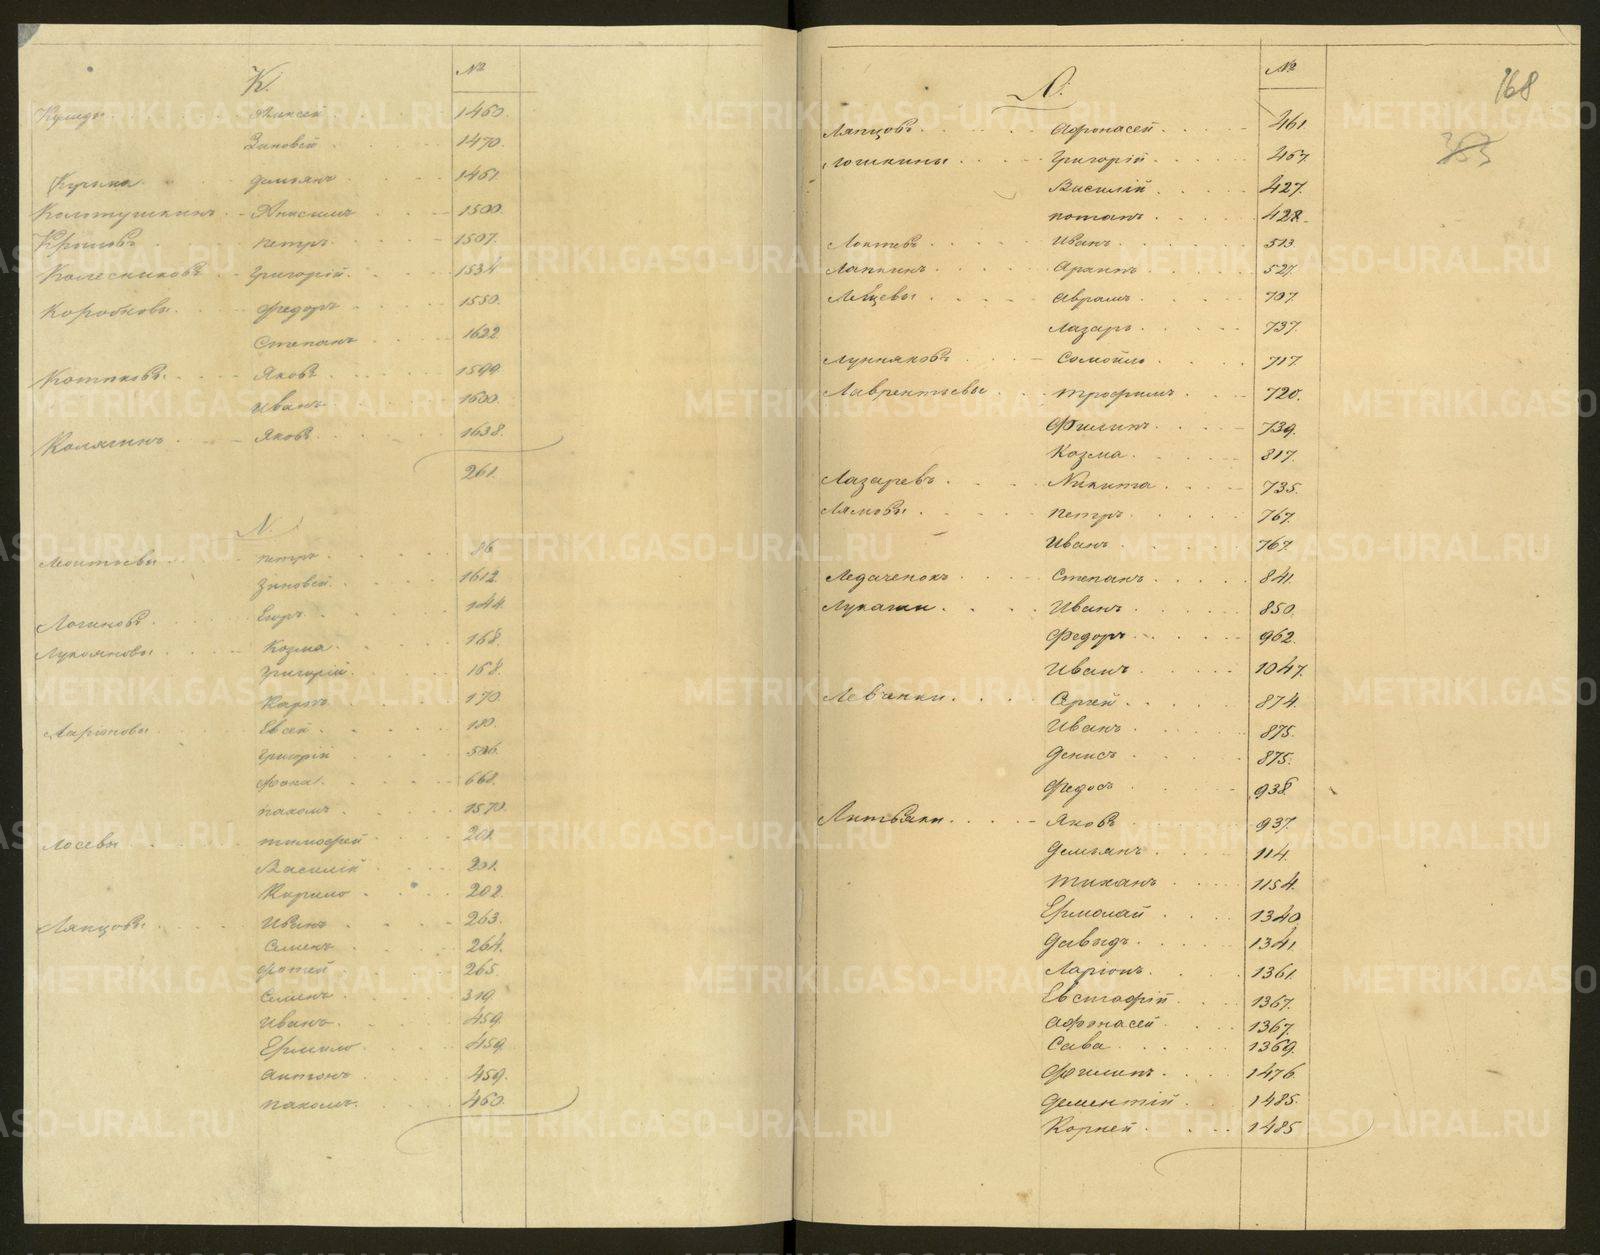 К.
№
Алексей 1460.
Зиновей 1470.
Курина Демьянъ 1461
Колотушкинъ Анисимъ 1500.
Крыловъ Петръ 1507.
Колесниковъ Григорій 1534
Коробковы Федоръ 1550.
Степанъ 1622
Котиковъ Яковъ 1599
Иванъ 1600.
Колягинъ Яковъ 1638.
261.
Л.
Леонтьевы Петръ 86
Зиновей 1612
Логиновъ Егоръ 144.
Лукояновы Козма 168.
Григорій 168.
Карпъ 170.
Ларіоновы Евсей 180.
Григорій 506.
Фока 668.
Пахомъ 1570.
Лосевы Тимофей 201.
Василій 201.
Кирило 202.
Ляпцовы Иванъ 263.
Семенъ 264.
Фотей 265.
Семенъ 319.
Иванъ 459.
Ермило 459.
Антонъ 459.
Пахомъ 460.
168
353
Л.
№
Ляпцовъ Афонасей 461.
Лошкины Григорій 467.
Василій 427.
Потапъ 428.
Локтевъ Иванъ 513.
Лапкинъ Архипъ 527.
Лейцевы Аврамъ 707.
Лазарь 737.
Лукняковъ Самойло 717.
Лаврентьевы Трофимъ 720.
Филипъ 739.
Козма 817.
Лазаревъ Никита 735.
Лямовы Петръ 767.
Иванъ 767.
Ледаченокъ Степанъ 841.
Лукаши Иванъ 850.
Федоръ 962.
Иванъ 1047.
Левченки Сергей 874.
Иванъ 875.
Денисъ 875.
Федосъ 938.
Литвяки Яковъ 937.
Демьянъ 114.
Тиханъ 1154.
Ермолай 1340
Давыдъ 1341.
Ларіонъ 1361.
Евстафій 1367.
Афонасей 1367.
Сава 1369.
Филипъ 1476.
Дементій 1485.
Корней 1485